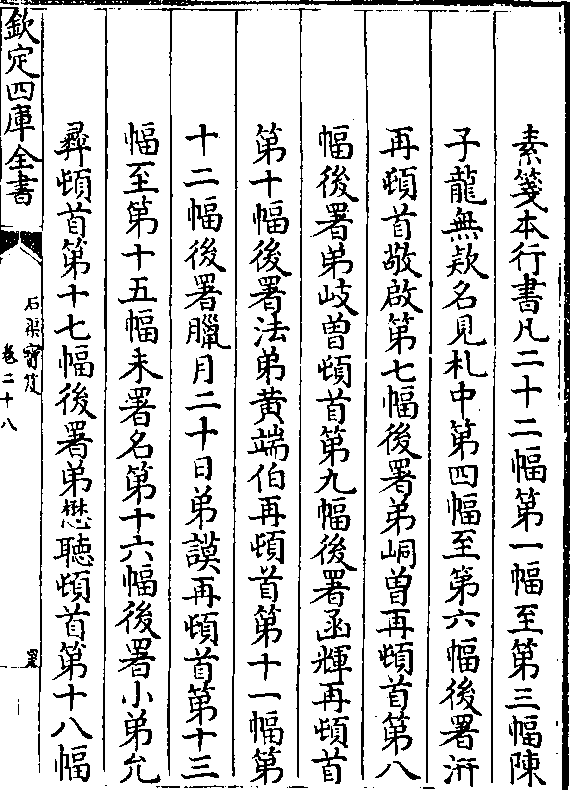 素箋本行書凡二十二幅第一幅至第三幅陳
子龍無款名見札中第四幅至第六幅後署洴
再頓首敬啟第七幅後署弟峒曽再頓首第八
幅後署弟岐曽頓首第九幅後署函輝再頓首
第十幅後署法弟黄端伯再頓首第十一幅第
十二幅後署臘月二十日弟謨再頓首第十三
幅至第十五幅未署名第十六幅後署小弟允
彝頓首第十七幅後署弟懋聴頓首第十八幅
欽定四庫全書
石渠寳笈
卷二十八